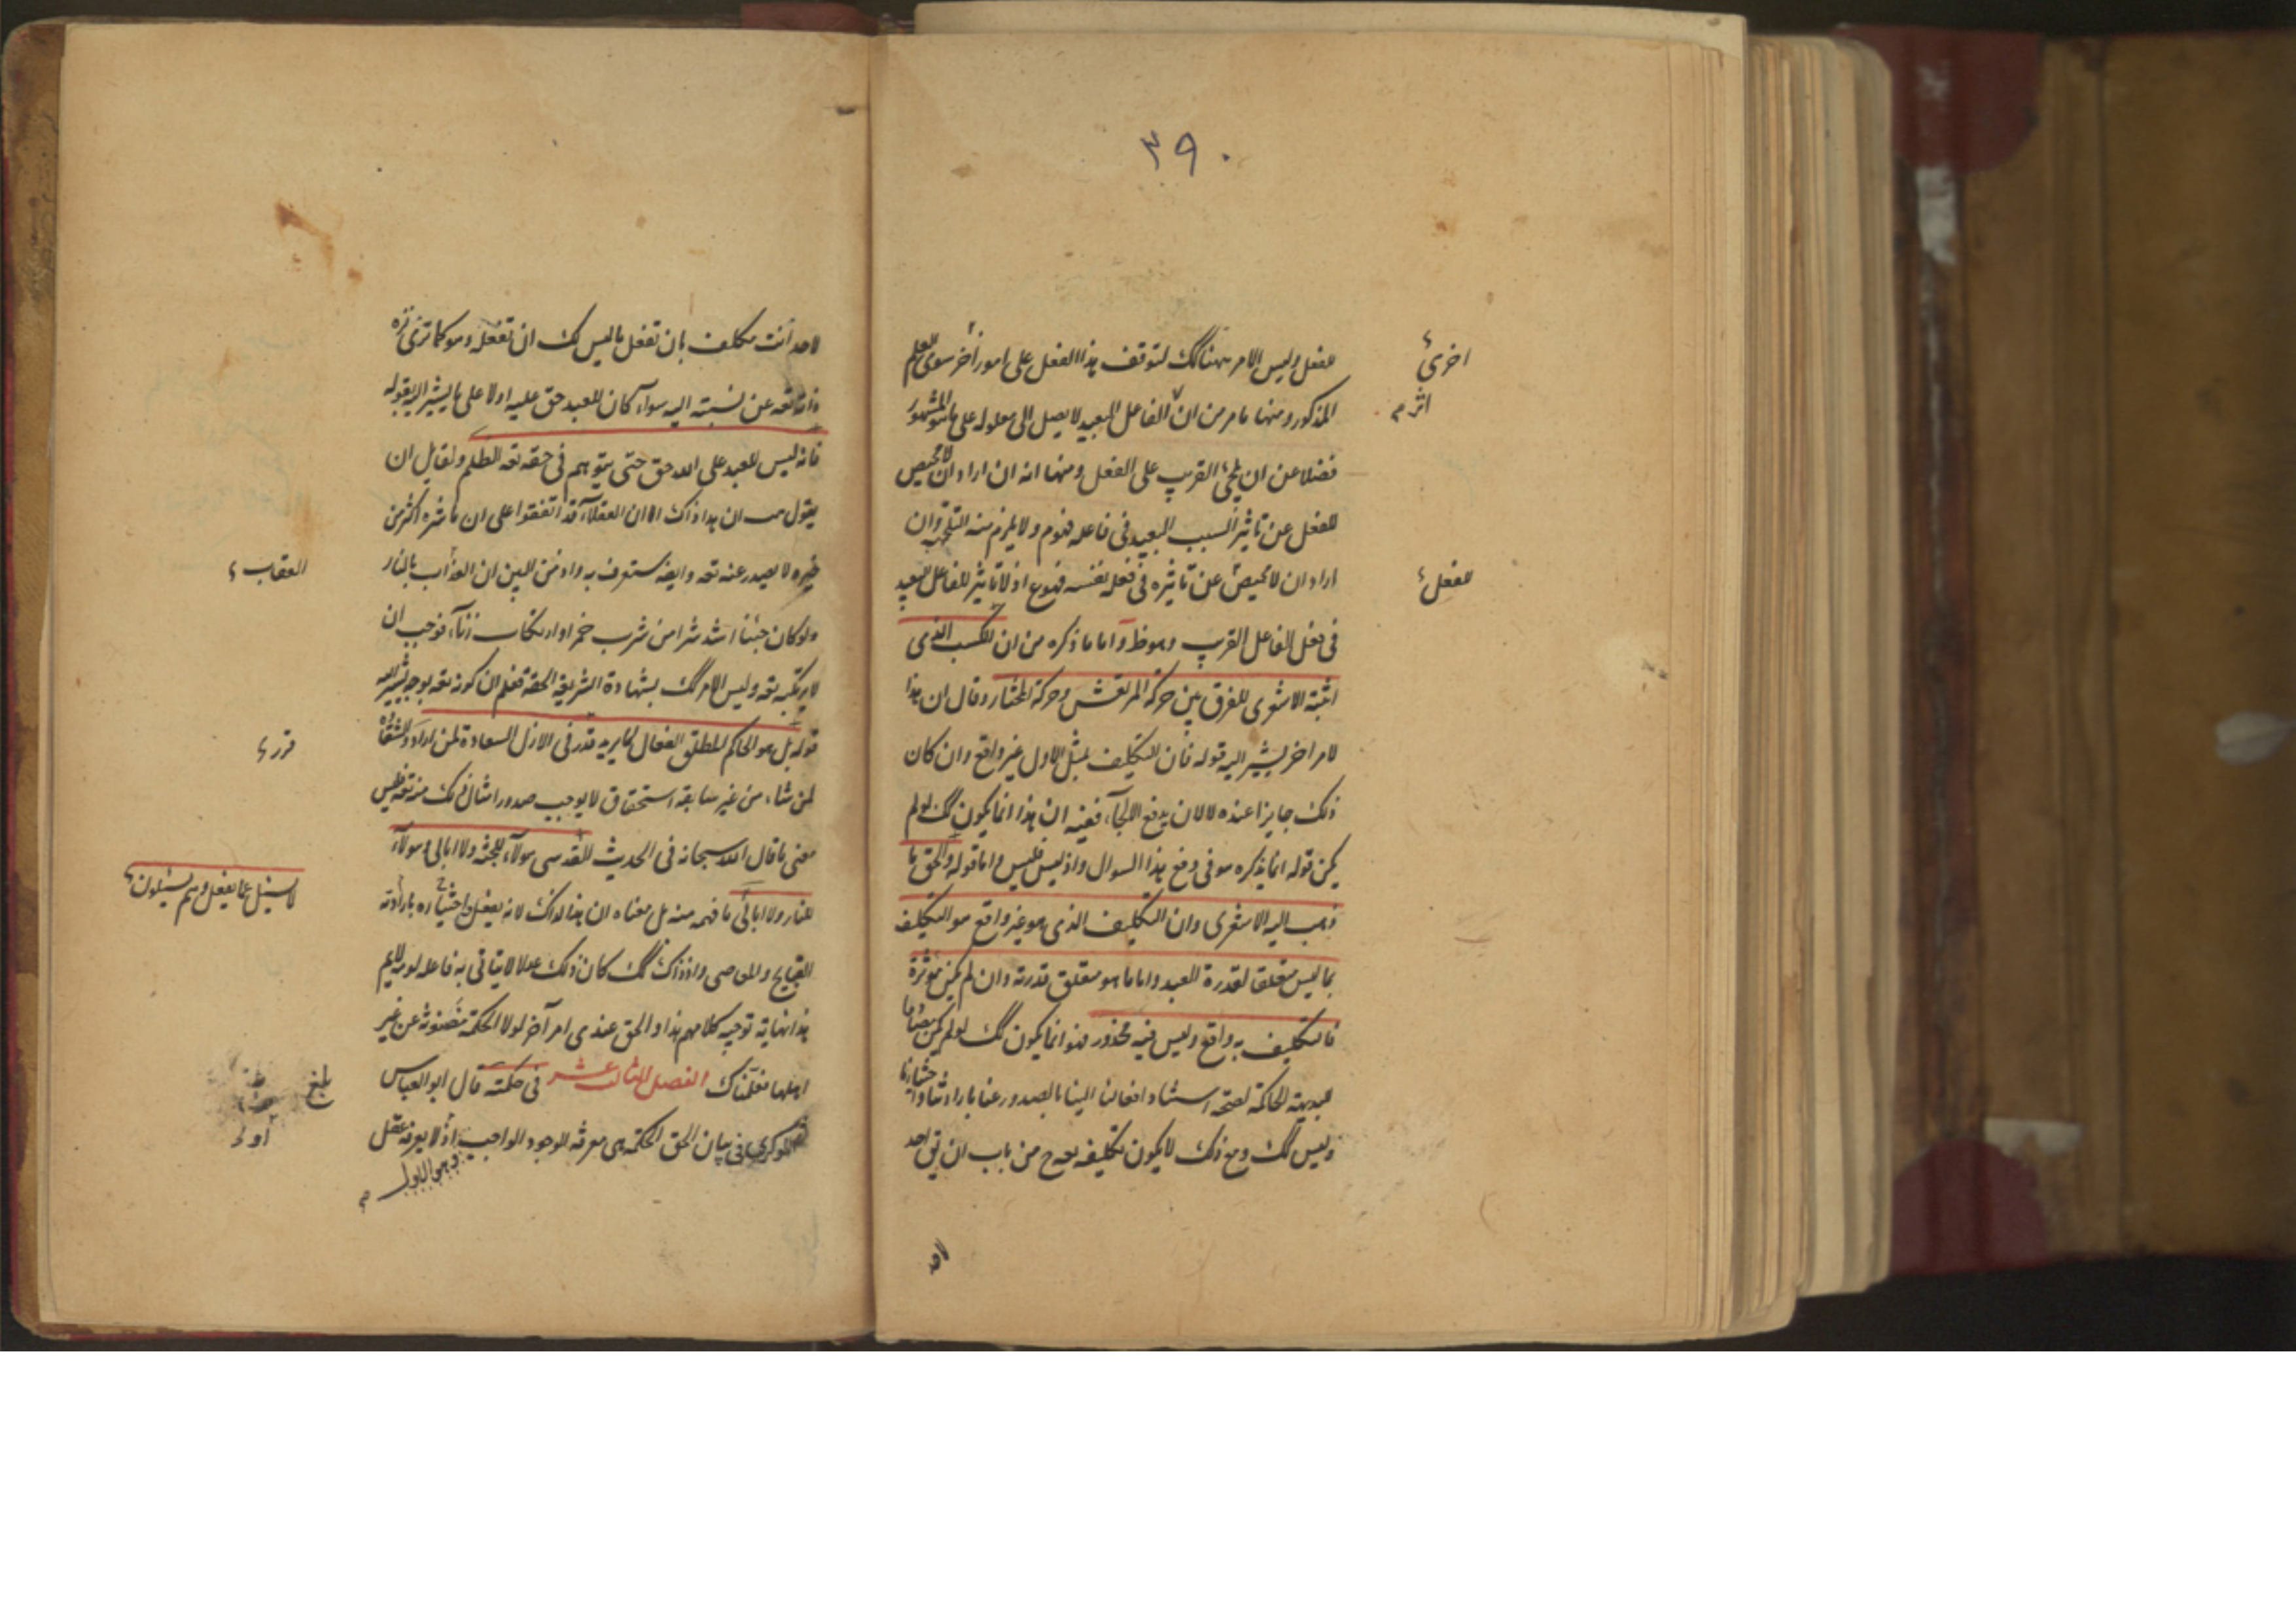 ٣٩٠
للفعل وليس الامر ههنا كك لتوقف هذا الفعل على امور أخر سوى العلم
اخرى
المذكور ومنها ما مر من ان الفاعل البعيد لا يصل الى معلوله على ما هو المشهور
اثر
فضلا عن ان يلجئ القريب على الفعل ومنها انه ان اراد ان لا محيص
للفعل عن تاثير السبب البعيد في فاعله فهو م ولا يلزم منه وان
اراد ان لا محيص عن تاثيره في فعله نفسه فهو ع اذ لا تاثير للفاعل البعيد
للفعل
في فعل الفاعل القريب وهو ظ واما ما ذكره من ان الكسب الذي
اثبته الاشعرى للفرق بين حركة المرتعش وحركة المختار وقال ان هذا
لامر اخر يشير اليه قوله فان التكليف بمثل الاول غير واقع وان كان
ذلك جايزا عنده لا لان يدفع الالجآء ففيه ان هذا انما يكون كك لو لم
يكن قوله انما يذكره هو في دفع هذا السوال واذ ليس فليس واما قوله والحق ما
ذهب اليه الاشعرى وان التكليف الذي هو غير واقع هو التكليف
بما ليس متعلقا لقدرة العبد واما ما هو متعلق قدرته وان لم يكن مؤثرة
فالتكليف به واقع وليس فيه محذور فهو انما يكون كك لو لم يكن
البديهة الحاكمة لصحة استناد افعالنا الينا بالصدور عنا بارادتنا
وليس كك ومع ذلك لا يكون تكليفه تعه ح من باب ان يق احد
لاحد
لاحد أنت مكلف بان تفعل ما ليس لك ان تفعله وهو كما ترى
ذاته تعه عن نسبته اليه سوآء كان للعبد حق عليه او لا على ما يشير اليه بقوله
فانه ليس للعبد على الله حق حتى يتوهم في حقه تعه الظلم ولقايل ان
يقول ان هذا ذاك الا ان العقلآء قد اتفقوا على ان ما شره اكثر من
خيره لا يصدر عنه تعه وايضا ستعرف به واذ من البين ان العذاب بالنار
العقاب
ولو كان اشد شرا من شرب خمر او ارتكاب زنآء فوجب ان
لا يرتكبه تعه وليس الامر كك بشهادة الشريعة الحقة فعلم ان كونه تعه بوجه يشير اليه
قوله بل هو الحاكم المطلق الفعال لما يريد قدر في الازل السعادة لمن اراد والشقاوة
قرر
لمن شاء من غير سابقة استحقاق لا يوجب صدور امثال ذلك منه تعه فليس
معنى ما قال الله سبحانه في الحديث القدسي هولآء للجنة ولا ابالي وهولآء
لا يسئل عما يفعل وهم يسئلون
للنار ولا ابالي ما فهمه منه بل معناه ان هذا لذاك لانه يفعل باختياره بارادته
القبايح والمعاصى واذ ذاك كك كان ذلك عدلا لا يتاتى به فاعله لومة لايم
هذا نهاية توجيه كلامهم هذا والحق عندى امر آخر لولا الحكمة مضنونة عن غير
اهلها لقلناك الفصل الثالث عشر في حكمته قال ابو العباس
بلغ
اللوكرى في بيان الحق الحكمة هى معرفة الوجود الواجب اذ لا يعرفه عقل
وهو الاول